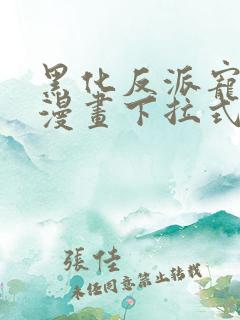 黑化反派寵
漫畫下拉式
張佳
未经同意禁止转载